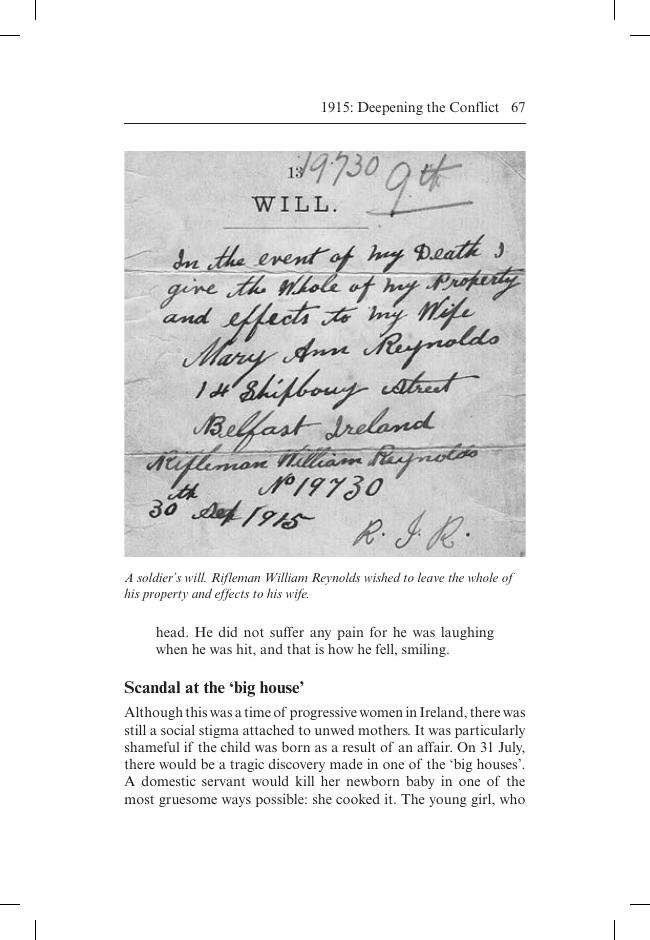 1915: Deepening the Conflict 67
13
19730 9th
WILL.
In the event of my Death I
give the Whole of my Property
and effects to my Wife
Mary Ann Reynolds
14 Shipbouy Street
Belfast Ireland
Rifleman William Reynolds
No 19730
30th Sep 1915
R. I. R.
A soldier’s will. Rifleman William Reynolds wished to leave the whole of
his property and effects to his wife.
head. He did not suffer any pain for he was laughing
when he was hit, and that is how he fell, smiling.
Scandal at the ‘big house’
Although this was a time of progressive women in Ireland, there was
still a social stigma attached to unwed mothers. It was particularly
shameful if the child was born as a result of an affair. On 31 July,
there would be a tragic discovery made in one of the ‘big houses’.
A domestic servant would kill her newborn baby in one of the
most gruesome ways possible: she cooked it. The young girl, who